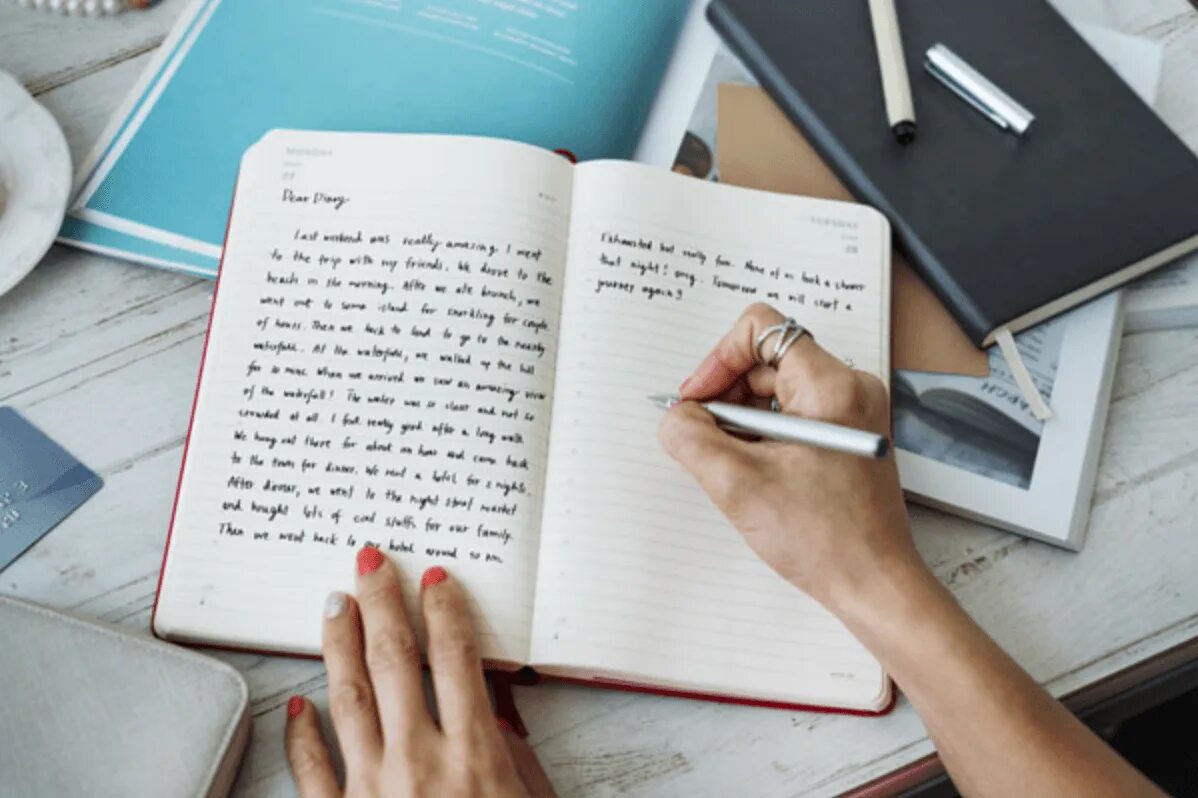 MONDAY
27
Dear Diary
Last weekend was really amazing. I went
to the trip with my friends. We drove to the
beach in the morning. After we ate brunch, we
went out to some island for snorkling for couple
of hours. Then we back to land to go to the nearby
waterfall. At the waterfall, we walked up the hill
for 30 mins. When we arrived we saw an amazing view
of the waterfall! The water was so clear and not so
crowded at all. I feel really good after a long walk.
We hung out there for about an hour and came back
to the town for dinner. We rent a hotel for 2 nights.
After dinner, we went to the night street market
and bought lots of cool stuffs for our family.
Then we went back to our hotel around 10 pm.
TUESDAY
28
Exhausted but really fun. None of us took a shower
that night! omg. Tomorrow we will start a
journey again!